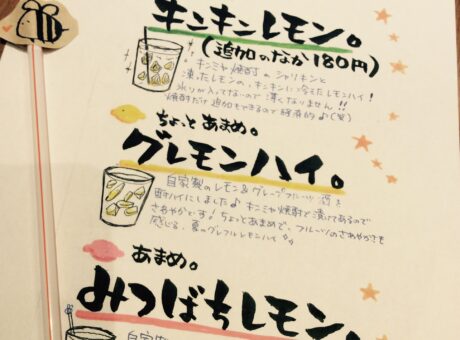 キンキンレモン。
(追加のなか180円)
キンミヤ焼酎のシャリキンと
凍ったレモンの、キンキンに冷えたレモンハイ!
氷りが入ってないので薄くなりません!!
焼酎だけ追加もできるので経済的♪(笑)
ちょっとあまめ。
グレモンハイ。
自家製のレモン&グレープフルーツ漬
酎ハイにしました♪キンミヤ焼酎で漬てあるので
さわやかです!ちょっとあまめで、フルーツのさわやかさを
感じる、夏のグレフルレモンハイ
あまめ。
みつばちレモン。
自家